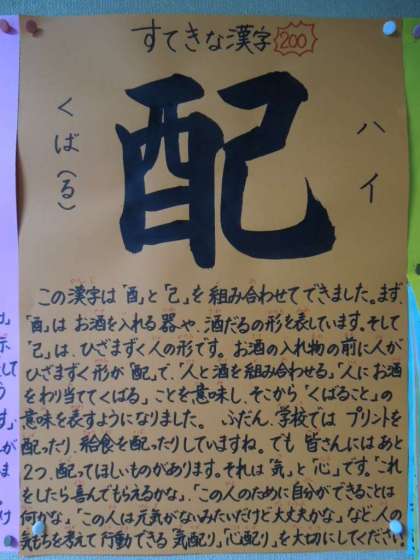 すてきな漢字 200
配
ハイ
くば(る)
この漢字は「酉」と「己」を組み合わせてできました。まず、
「酉」はお酒を入れる器や、酒だるの形を表しています。そして
「己」は、ひざまずく人の形です。お酒の入れ物の前に人が
ひざまずく形が「配」で、「人と酒を組み合わせる」「人にお酒
をわり当ててくばる」ことを意味し、そこから「くばること」の
意味を表すようになりました。ふだん、学校ではプリントを
配ったり、給食を配ったりしていますね。でも皆さんにはあと
2つ、配ってほしいものがあります。それは「気」と「心」です。「これ
をしたら喜んでもらえるかな」、「この人のために自分ができることは
何かな」、「この人は元気がないみたいだけど大丈夫かな」など、人の
気もちを考えて行動できる「気配り」「心配り」を大切にしてください!